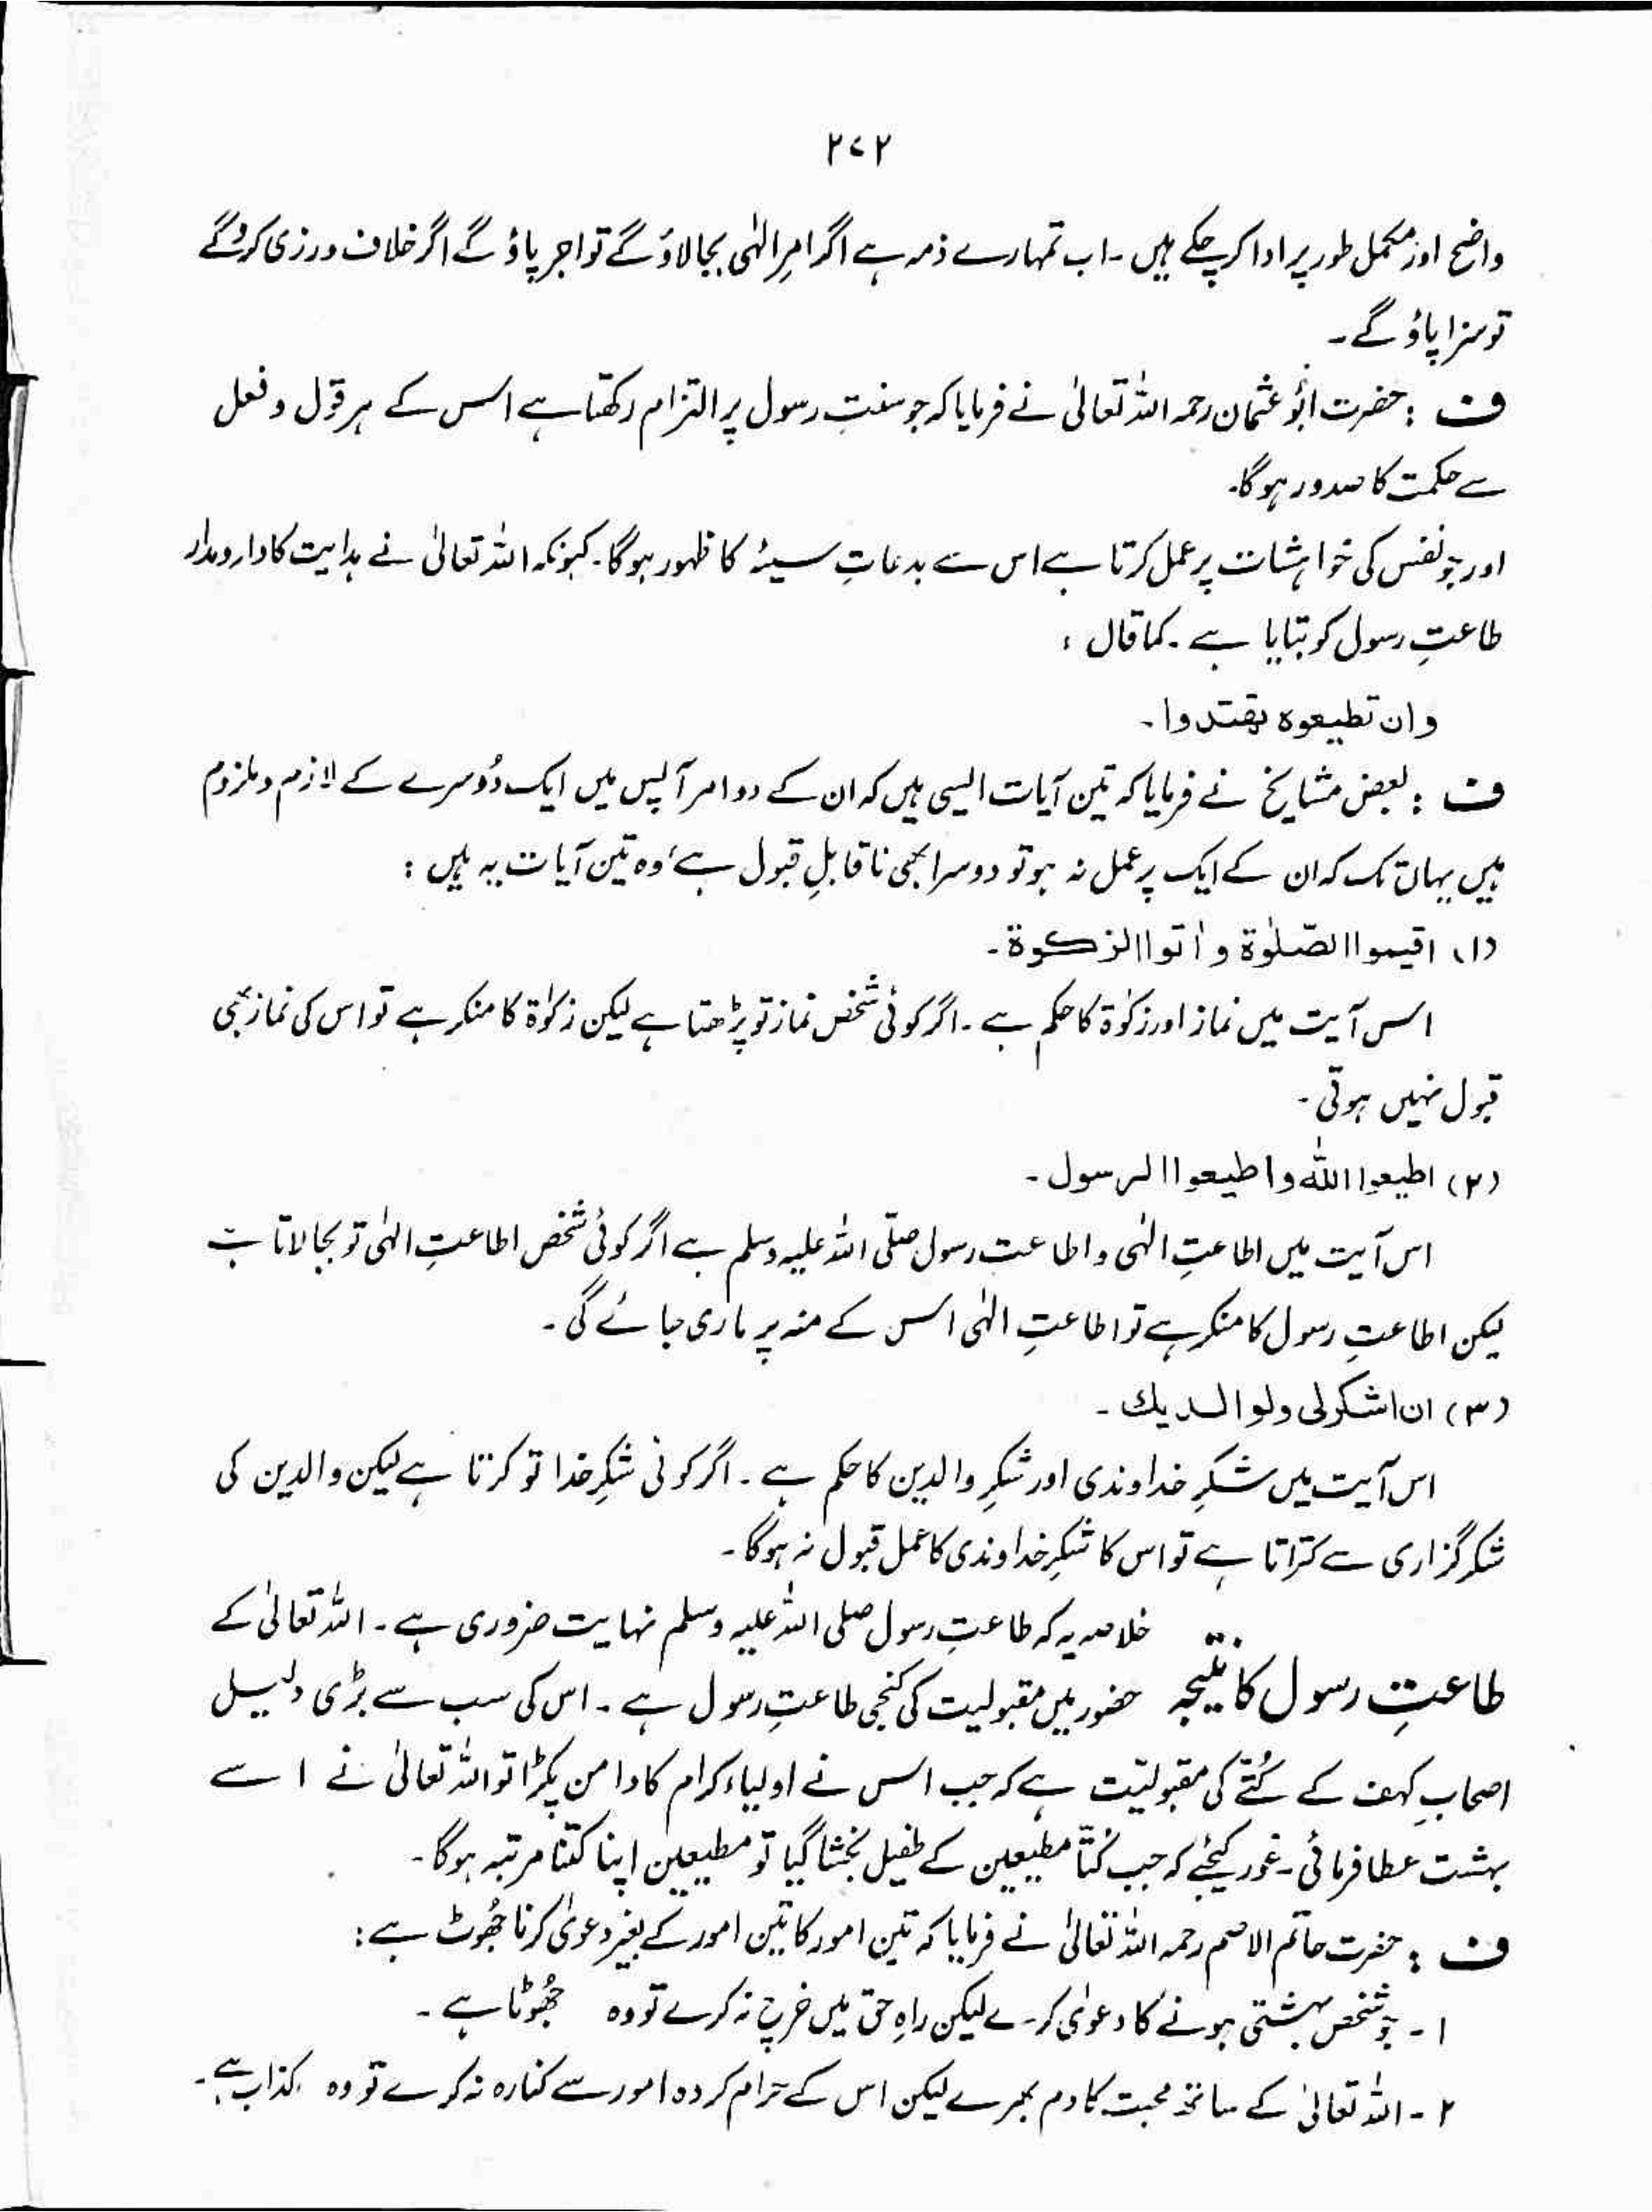 ۲۷۲
واضح اور مکمل طور پر ادا کر چکے ہیں ۔ اب تمہارے ذمہ ہے اگر امرِ الٰہی بجا لاؤ گے تو اجر پاؤ گے اگر خلاف ورزی کرو گے
تو سزا پاؤ گے ۔
ف : حضرت ابُو عثمان رحمہ اللہ تعالیٰ نے فرمایا کہ جو سنتِ رسول پر التزام رکھتا ہے اس کے ہر قول و فعل
سے حکمت کا صدور ہوگا۔
اور جو نفس کی خواہشات پر عمل کرتا ہے اس سے بدعاتِ سیئہ کا ظہور ہوگا۔ کیونکہ اللہ تعالیٰ نے ہدایت کا دارومدار
طاعتِ رسول کو بتایا ہے ۔ کما قال :
وان تطیعوہ تھتدوا ۔
ف : بعض مشایخ نے فرمایا کہ تین آیات ایسی ہیں کہ ان کے دو امر آپس میں ایک دُوسرے کے لازم و ملزوم
ہیں یہاں تک کہ ان کے ایک پر عمل نہ ہو تو دوسرا بھی ناقابلِ قبول ہے، وہ تین آیات یہ ہیں :
(۱) اقیموا الصّلوٰۃ واٰتوا الزکوۃ ۔
اس آیت میں نماز اور زکوٰۃ کا حکم ہے ۔ اگر کوئی شخص نماز تو پڑھتا ہے لیکن زکوٰۃ کا منکر ہے تو اس کی نماز بھی
قبول نہیں ہوتی ۔
(۲) اطیعوا اللہ واطیعوا الرسول ۔
اس آیت میں اطاعتِ الٰہی و اطاعت رسول صلّی اللہ علیہ وسلم ہے اگر کوئی شخص اطاعتِ الٰہی تو بجا لاتا ہے
لیکن اطاعتِ رسول کا منکر ہے تو اطاعتِ الٰہی اس کے منہ پر ماری جائے گی ۔
(۳) ان اشکرلی ولوالدیك ۔
اس آیت میں شکرِ خداوندی اور شکرِ والدین کا حکم ہے ۔ اگر کوئی شکرِ خدا تو کرتا ہے لیکن والدین کی
شکر گزاری سے کتراتا ہے تو اس کا شکرِ خداوندی کا عمل قبول نہ ہوگا ۔
خلاصہ یہ کہ طاعتِ رسول صلی اللہ علیہ وسلم نہایت ضروری ہے ۔ اللہ تعالیٰ کے
طاعتِ رسول کا نتیجہ حضور میں مقبولیت کی کنجی طاعتِ رسول ہے ۔ اس کی سب سے بڑی دلیل
اصحابِ کہف کے کُتّے کی مقبولیّت ہے کہ جب اس نے اولیاء کرام کا دامن پکڑا تو اللہ تعالیٰ نے اسے
بہشت عطا فرمائی ۔ غور کیجئے کہ جب کُتّا مطیعین کے طفیل بخشا گیا تو مطیعین اپنا کتنا مرتبہ ہوگا ۔
ف : حضرت حاتم الاصم رحمہ اللہ تعالیٰ نے فرمایا کہ تین امور کا تین امور کے بغیر دعویٰ کرنا جُھوٹ ہے :
۱ ۔ جو شخص بہشتی ہونے کا دعویٰ کرے لیکن راہِ حق میں خرچ نہ کرے تو وہ جُھوٹا ہے ۔
۲ ۔ اللہ تعالیٰ کے ساتھ محبت کا دم بھرے لیکن اس کے حرام کردہ امور سے کنارہ نہ کرے تو وہ کذاب ہے ۔